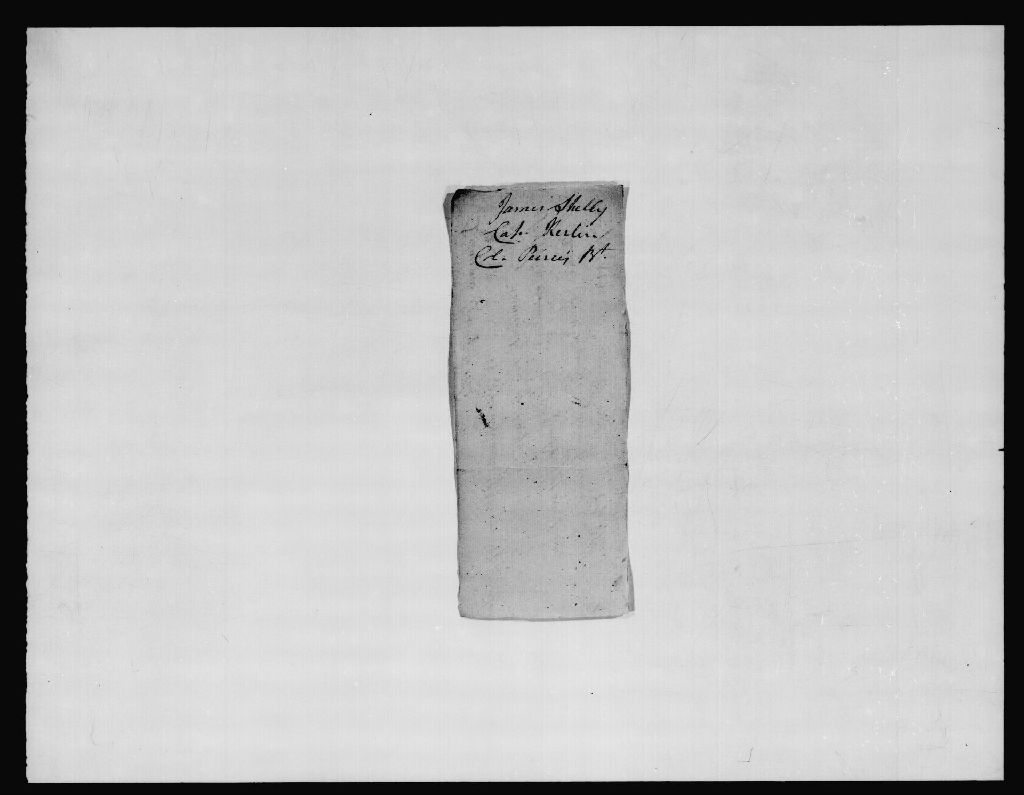 James Shelly
Capt. Kerlin
Col. Peircis Bt.